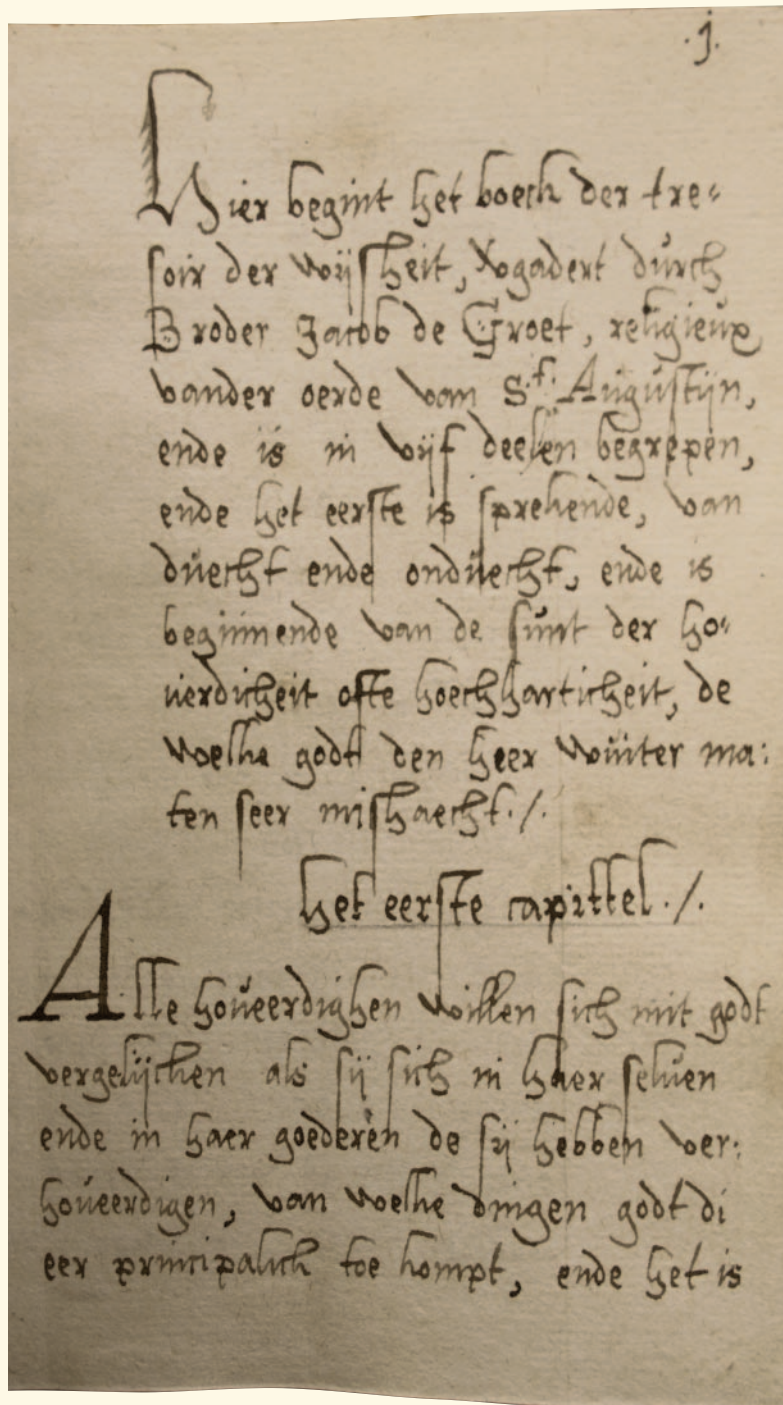 .j.
Hier begint het boeck der tre⸗
soir der wijsheit, vgadert durch
Broder Jacob de Groet, religieux
vander oerde van S.t Augustijn,
ende is in vijf deelen begrepen,
ende het eerste is sprekende, van
duecht ende onduecht, ende is
beginnende van de sunt der ho⸗
verdicheit ofte hoechharticheit, de
welke godt den heer wuiter ma:
ten seer mishaecht ./.
het eerste capittel ./.
Alle hoveerdighen willen sich mit godt
vergelijcken als sij sich in haer selven
ende in haer goederen de sij hebben ver:
hoveerdigen, van welke dingen godt di
eer principalick toe kompt, ende het is